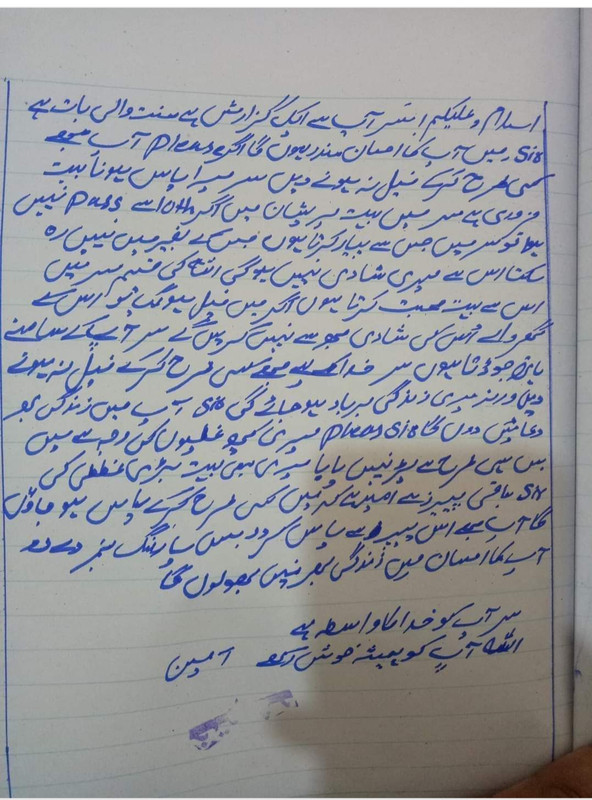 اسلام وعلیکم! سر آپ سے ایک گزارش ہے منت والی بات ہے
Sir میں آپ کا احسان مند رہوں گا اگر Pleas آپ مجھے
کسی طرح کرکے فیل نہ ہونے دیں سر میرا پاس ہونا بہت
ضروری ہے سر میں بہت پریشان میں اگر 10th سے Pass نہیں
ہوا تو سر میں جس سے پیار کرتا ہوں جس کے بغیر میں نہیں رہ
سکتا اس سے میری شادی نہیں ہو گی اللہ کی قسم سر میں
اس سے بہت محبت کرتا ہوں اگر میں فیل ہو گیا تو اس کے
گھر والے اس کی شادی مجھ سے نہیں کریں گے سر آپ کے سامنے
ہاتھ جوڑتا ہوں سر خدا کے لیے مجھے کسی طرح کرکے فیل نہ ہونے
دیں ورنہ میری زندگی برباد ہو جائے گی Sir آپ میں زندگی بھر
دعائیں دوں گا Pleas Sir میری کچھ غلطیوں کی وجہ سے میں
بس سہی طرح سے پڑ نہیں پایا میری ہی بہت بڑی غلطی تھی
Sir باقی پیپرز سے امید ہے کہ میں کسی طرح کرکے پاس ہو جاؤں
گا آپ مجھے اس پیپر سے پاس کر دو بس پاسنگ نمبر دے دو
آپ کا احسان میں زندگی بھر نہیں بھولوں گا
سر آپ کو خدا کا واسطہ ہے
اللہ آپ کو ہمیشہ خوش رکھے آمین